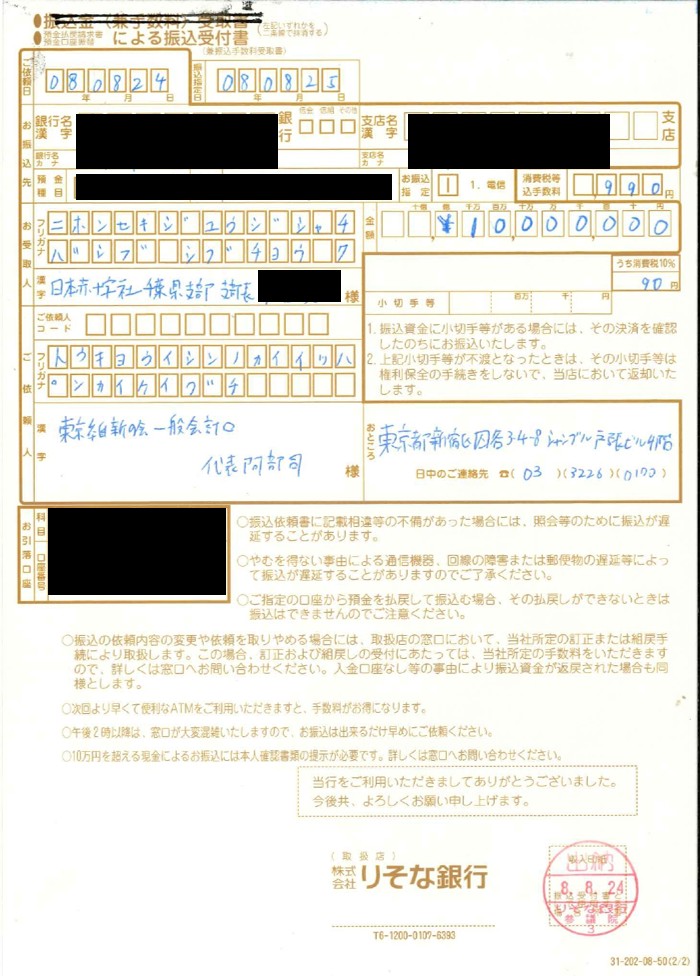 ●振込金（兼手数料）受取書
●預金払戻請求書
預金口座振替
による振込受付書
左記いずれかを
二重線で抹消する
（兼振込手数料受取書）
ご依頼日
080824
年 月 日
振込指定日
080825
年 月 日
お振込先
銀行名
漢字
銀行
信金 信組 その他
支店名
漢字
支店
銀行名
カナ
支店名
カナ
預金
種目
お振込
指定
1
1.電信
消費税等
込手数料
990円
お受取人
フリガナ
ニホンセキジュウジシャチ
バシブ シブチョウ
漢字
日本赤十字社千葉県支部 支部長
様
金額
十億 億 千万 百万 十万 万 千 百 十 円
¥10000000
うち消費税10%
90円
小切手等
百万 千 円
ご依頼人
コード
1.振込資金に小切手等がある場合には、その決済を確認
したのちにお振込いたします。
2.上記小切手等が不渡となったときは、その小切手等は
権利保全の手続きをしないで、当店において返却いた
します。
ご依頼人
フリガナ
トウキョウイシンノカイイッパ
ンカイケイグチ
漢字
東京維新の会一般会計口
代表阿部司
様
おところ
東京都新宿区四谷3-4-8 戸張ビル4階
日中のご連絡先 ☎(03)(3226)(0100)
お引落口座
科目
口座番号
○振込依頼書に記載相違等の不備があった場合には、照会等のために振込が遅
延することがあります。
○やむを得ない事由による通信機器、回線の障害または郵便物の遅延等によっ
て振込が遅延することがありますのでご了承ください。
○ご指定の口座から預金を払戻して振込む場合、その払戻しができないときは
振込はできませんのでご注意ください。
○振込の依頼内容の変更や依頼を取りやめる場合には、取扱店の窓口において、当社所定の訂正または組戻手
続により取扱します。この場合、訂正および組戻しの受付にあたっては、当社所定の手数料をいただきますの
で、詳しくは窓口へお問い合わせください。入金口座なし等の事由により振込資金が返戻された場合も同
様とします。
○次回より早くて便利なATMをご利用いただきますと、手数料がお得になります。
○午後2時以降は、窓口が大変混雑いたしますので、お振込は出来るだけ早めにご依頼ください。
○10万円を超える現金によるお振込には本人確認書類の提示が必要です。詳しくは窓口へお問い合わせください。
当行をご利用いただきましてありがとうございました。
今後共、よろしくお願い申し上げます。
（取扱店）
株式
会社 りそな銀行
T6-1200-0107-6393
出納
8.8.24
りそな銀行
参議院
3
31-202-08-50(2/2)